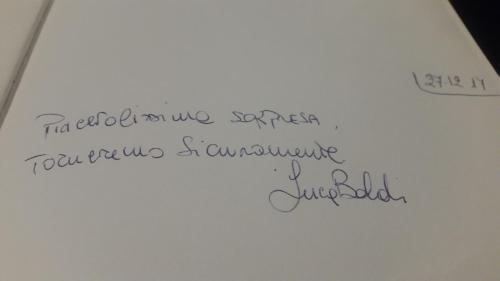 27.12.17
Piacevolissima SORPRESA,
Torneremo Sicuramente
Luca Boldi